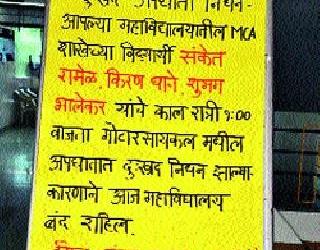 दुःखद अपघाती निधन-
आपल्या महाविद्यालयातील MCA
शाखेच्या विद्यार्थी संकेत
रामेळ, किरण थाने, शुभम
शालेकर यांचे काल रात्री १:००
वाजता मोटारसायकल मधील
अपघातात दुःखद निधन झाल्या-
कारणाने आज महाविद्यालय
बंद राहिल.